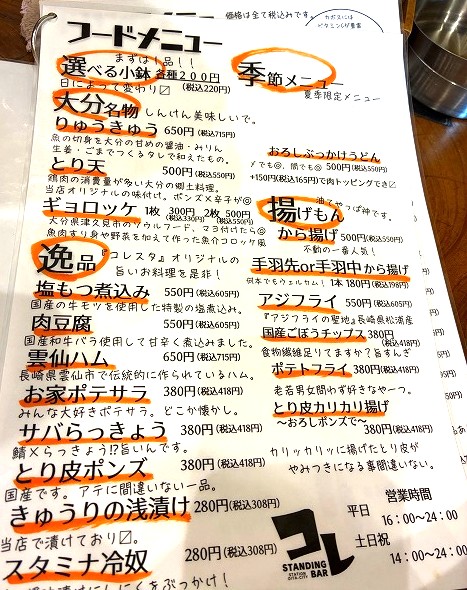 価格は全て税込みです。
カボスには
ビタミンCが豊富
フードメニュー
まずは1品！！
選べる小鉢 各種200円
日によって変わり〼 (税込220円)
大分名物 しんけん美味しいで。
りゅうきゅう 650円(税込715円)
魚の切身を大分の甘めの醤油・みりん
生姜・ごまでつくるタレで和えたもの。
とり天 500円(税込550円)
鶏肉の消費量が多い大分の郷土料理。
当店オリジナルの味付け。ポンズ×辛子が◎
ギョロッケ 1枚 300円 2枚 500円
(税込330円) (税込550円)
大分県津久見市のソウルフード、マヨ付けたら◎
魚肉すり身や野菜を加えて作った魚介コロッケ風
逸品 『コレスタ』オリジナルの
旨いお料理を是非！
塩もつ煮込み 550円(税込605円)
国産の牛モツを使用した特製の塩煮込み。
肉豆腐 550円(税込605円)
国産和牛バラ使用して甘辛く煮込ました。
雲仙ハム 650円(税込715円)
長崎県雲仙市で伝統的に作られているハム。
お家ポテサラ 380円(税込418円)
みんな大好きポテサラ。どこか懐かし。
サバらっきょう 380円(税込418円)
鯖×らっきょう!?旨いんです。
とり皮ポンズ 380円(税込418円)
国産です。アテに間違いない一品。
きゅうりの浅漬け 280円(税込308円)
当店で漬けており〼。
スタミナ冷奴 280円(税込308円)
にんにくをぶっかけ！
季節メニュー
夏季限定メニュー
おろしぶっかけうどん
〆でも◎、間でも◎ 500円(税込550円)
+150円(税込165円)で肉トッピングでき〼
揚げもん 油てやっぱ神です。
から揚げ 500円(税込550円)
不動の一番人気！
手羽先or手羽中から揚げ
何本でもウェルカム！ 1本 180円(税込198円)
アジフライ 550円(税込605円)
『アジフライの聖地』長崎県松浦産
国産ごぼうチップス 380円
(税込418円)
食物繊維足りてますか？旨すんぎ
ポテトフライ 380円
(税込418円)
老若男女問わず好きなやーつ。
とり皮カリカリ揚げ
〜おろしポンズで〜 380円(税込418円)
カリッカリッに揚げたとり皮が
やみつきになる事間違いない。
コレ
STANDING
BAR
STATION
OITA-CITY
営業時間
平日 16：00〜24：00
土日祝
14：00〜24：00